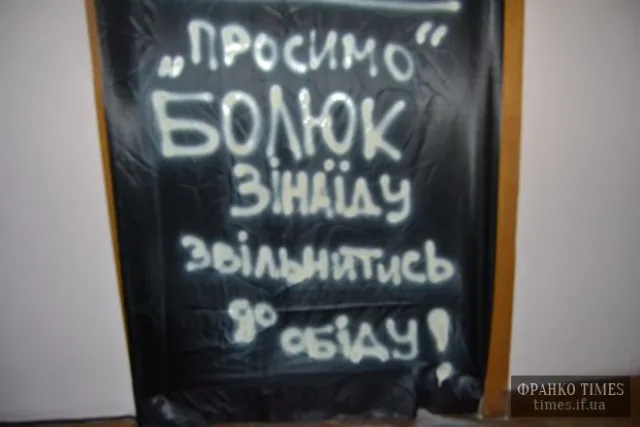 „ПРОСИМО“
БОЛЮК
ЗІНАЇДУ
ЗВІЛЬНИТИСЬ
ДО
ОБІДУ!
ФРАНКО TIMES
times.if.ua